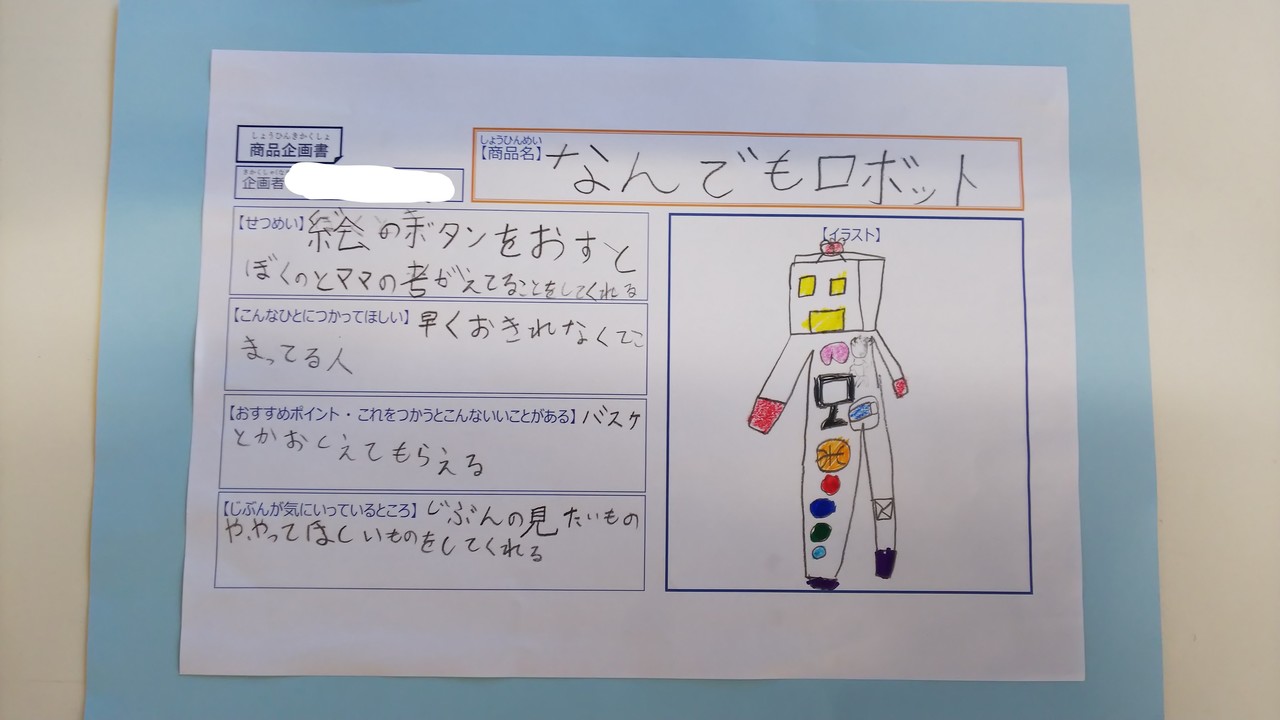 しょうひんきかくしょ
商品企画書
企画者
しょうひんめい
【商品名】なんでもロボット
【せつめい】絵のボタンをおすと
ぼくのとママの考がえてることをしてくれる
【こんなひとにつかってほしい】早くおきれなくてこ
まってる人
【おすすめポイント・これをつかうとこんないいことがある】バスケ
とかおしえてもらえる
【じぶんが気にいっているところ】じぶんの見たいもの
や、やってほしいものをしてくれる
【イラスト】